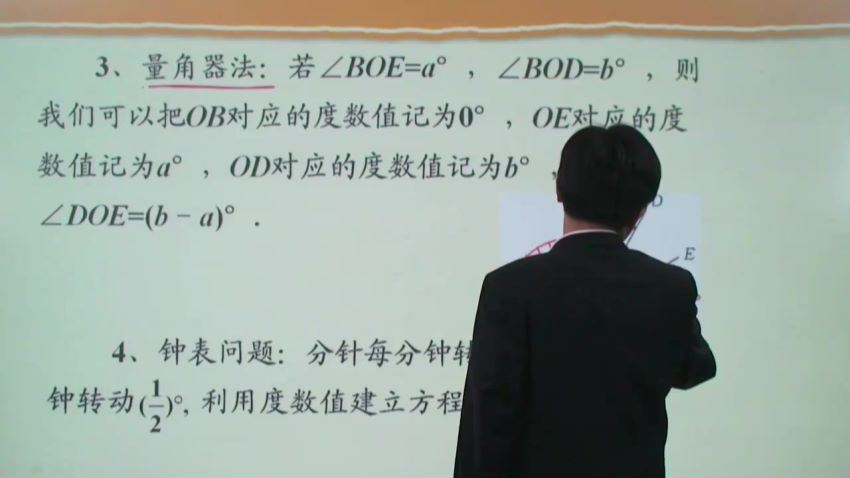 3、量角器法：若∠BOE=a°，∠BOD=b°，则
我们可以把OB对应的度数值记为0°，OE对应的度
数值记为a°，OD对应的度数值记为b°，
∠DOE=(b－a)°．
D
E
4、钟表问题：分针每分钟转
钟转动(1/2)°, 利用度数值建立方程